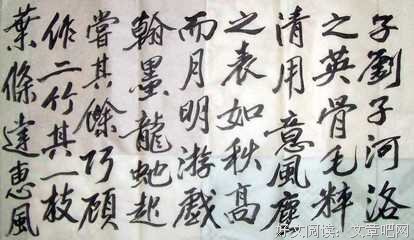 子劉子河洛
之英骨毛粹
清用意風塵
之表如秋高
而月明游戲
翰墨龍蛇起
嘗其餘巧顧
作二竹其一枝
葉條達惠風
好文阅读：文章吧网